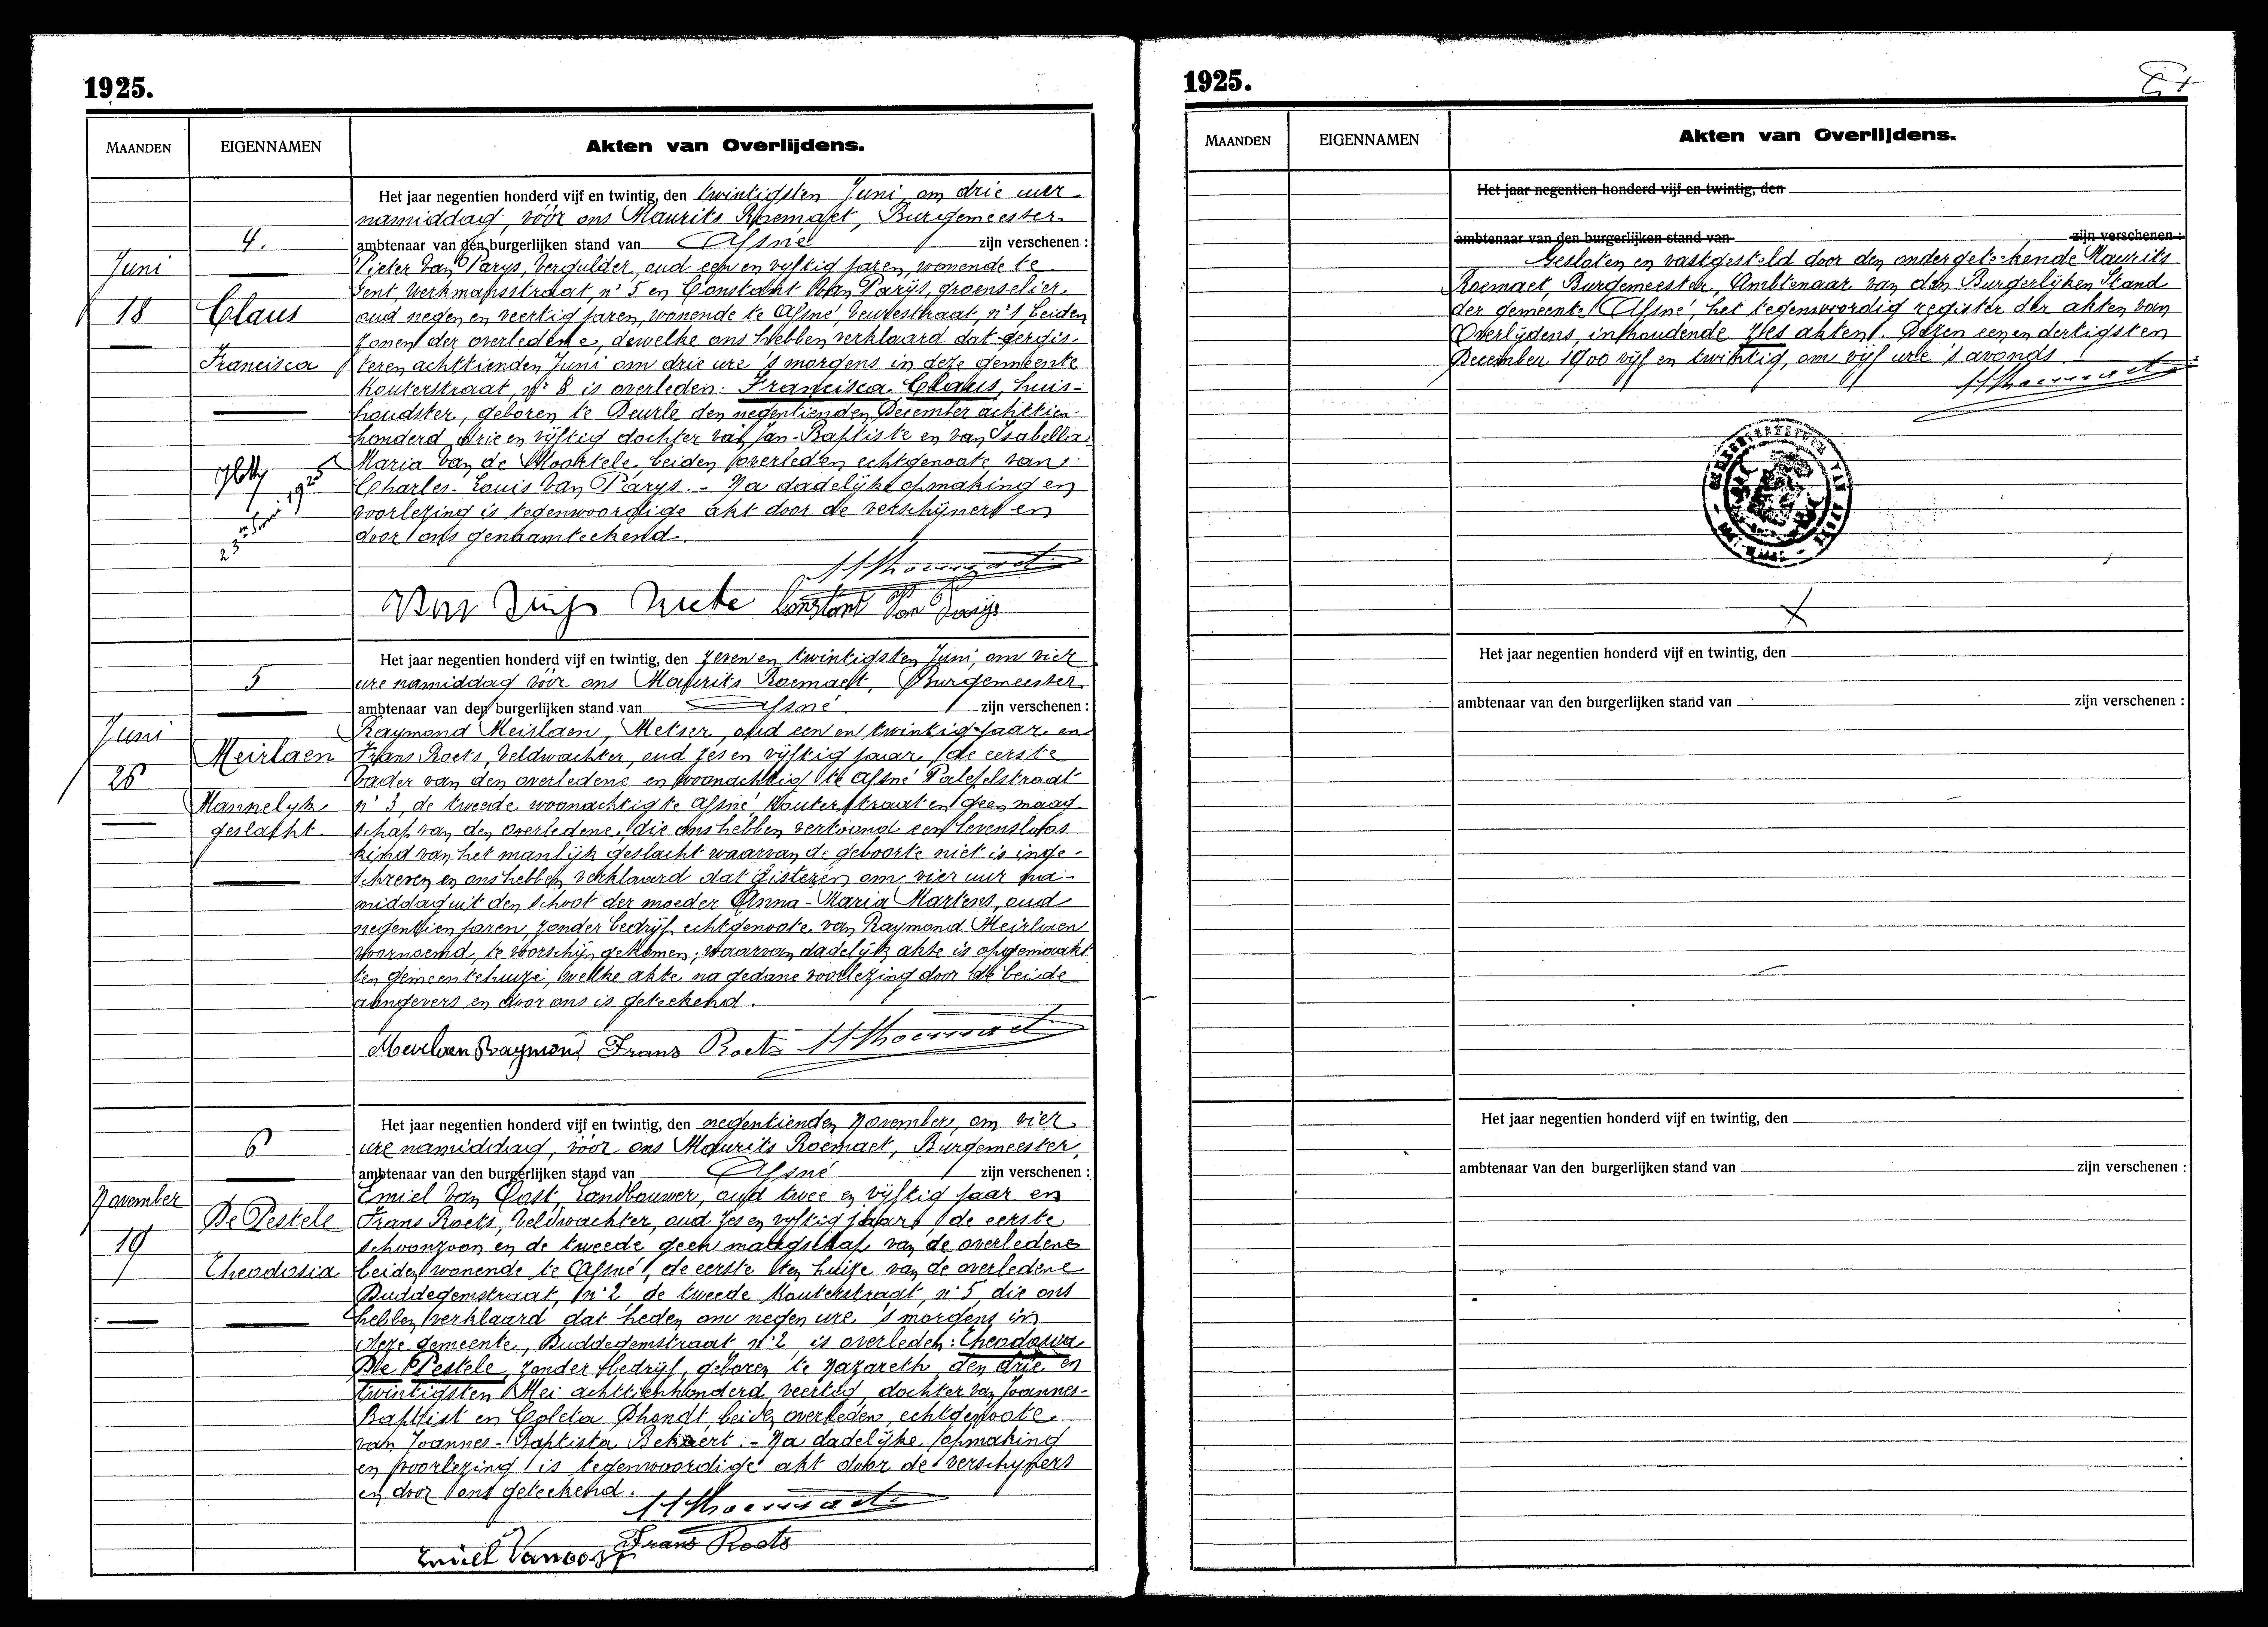 1925.
MAANDEN EIGENNAMEN Akten van Overlijdens.
4.
Juni
18
Claus
Francisca
23en Juni 1925
Het jaar negentien honderd vijf en twintig, den twintigsten Juni, om drie uur
namiddag, vóór ons Maurits Roemaet, Burgemeester
ambtenaar van den burgerlijken stand van Afsné zijn verschenen :
Pieter Van Parys, Vergulder, oud een en vyftig jaren, wonende te
Gent, Werkmansstraat, n° 5 en Constant Van Parijs, groenselier
oud negen en veertig jaren, wonende te Afsné, Veurestraat, n° 1, beiden
zonen der overledene, dewelke ons hebben verklaard dat eergis-
teren achttienden Juni om drie ure 's morgens in deze gemeente
Kouterstraat, n° 8 is overleden: Francisca Claus, huis-
houdster, geboren te Deurle den negentienden December achttien-
honderd drie en vijftig dochter van Jan-Baptiste en van Isabella
Maria Van de Moortele, beiden overleden echtgenoote van
Charles-Louis Van Parys. - Na dadelijke opmaking en
voorlezing is tegenwoordige akt door de verschijners en
door ons genaamteekend.
Constant Van Parijs
5
Juni
26
Meirlaen
Mannelyk
geslacht.
Het jaar negentien honderd vijf en twintig, den zeven en twintigsten Juni, om vier
ure namiddag vóór ons Maurits Roemaet, Burgemeester
ambtenaar van den burgerlijken stand van Afsné zijn verschenen :
Raymond Meirlaen, Metser, oud een en twintig jaar en
Frans Roets, Veldwachter, oud zes en vijftig jaar, de eerste
vader van den overledene en woonachtig te Afsné Patefelstraat
n° 3, de tweede woonachtig te Afsné Kouterstraat en geen maag-
schap van den overledene, die ons hebben vertoond een levensloos
kind van het manlijk geslacht waarvan de geboorte niet is inge-
schreven en ons hebben verklaard dat gisteren om vier uur na-
middag uit den schoot der moeder Anna-Maria Martens, oud
negentien jaren, zonder bedrijf echtgenoote van Raymond Meirlaen
voornoemd, te voorschijn gekomen; waarvan dadelijk akte is opgemaakt
ten gemeentehuize, welke akte na gedane voorlezing door de beide
aangevers en door ons is geteekend.
Meirlaen Raymond Frans Roets
6
November
19
De Pestele
Theodosia
Het jaar negentien honderd vijf en twintig, den negentienden November, om vier
ure namiddag, vóór ons Maurits Roemaet, Burgemeester,
ambtenaar van den burgerlijken stand van Afsné zijn verschenen :
Emiel Van Oost, Landbouwer, oud twee en vijftig jaar en
Frans Roets, Veldwachter, oud zes en vyftig jaar, de eerste
schoonzoon en de tweede geen maagschap van de overledene
beiden wonende te Afsné, de eerste ten huize van de overledene
Duddegemstraat, n° 2, de tweede Kouterstraat, n° 5, die ons
hebben verklaard dat heden om negen ure 's morgens in
deze gemeente, Duddegemstraat n° 2 is overleden: Theodosia
De Pestele, zonder bedrijf, geboren te Nazareth, den drie en
twintigsten Mei achttienhonderd veertig, dochter van Joannes-
Baptist en Coleta Dhondt beiden overleden, echtgenoote
van Joannes-Baptista Bekaert. - Na dadelijke opmaking
en voorlezing is tegenwoordige akt door de verschyners
en door ons geteekend.
Frans Roets
Emiel Vanoost
1925.
MAANDEN EIGENNAMEN Akten van Overlijdens.
Het jaar negentien honderd vijf en twintig, den
ambtenaar van den burgerlijken stand van zijn verschenen :
Gesloten en vastgesteld door den ondergeteekende Maurits
Roemaet, Burgemeester, Ambtenaar van den Burgerlijken Stand
der gemeente Afsné, het tegenwoordig register der akten van
Overlijdens, inhoudende zes akten. Dezen een en dertigsten
December 1900 vijf en twintig, om vijf ure 's avonds.
Het jaar negentien honderd vijf en twintig, den
ambtenaar van den burgerlijken stand van zijn verschenen :
Het jaar negentien honderd vijf en twintig, den
ambtenaar van den burgerlijken stand van zijn verschenen :